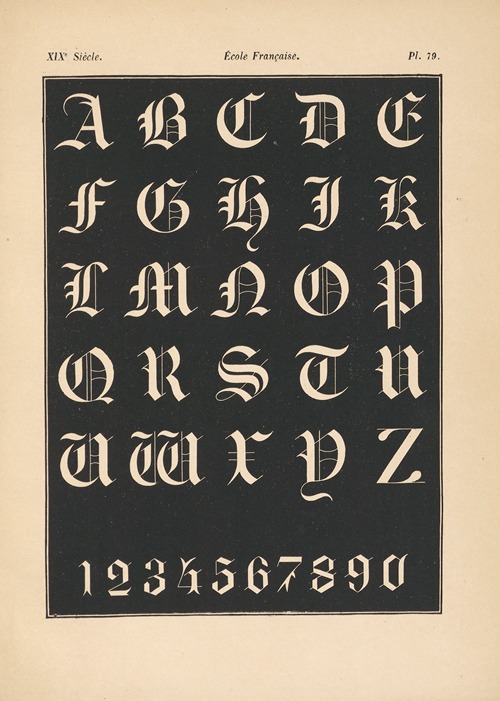 XIXᵉ Siècle. École Française. Pl. 79.
A B C D E
F G H I K
L M N O P
Q R S T U
V W X Y Z
1234567890